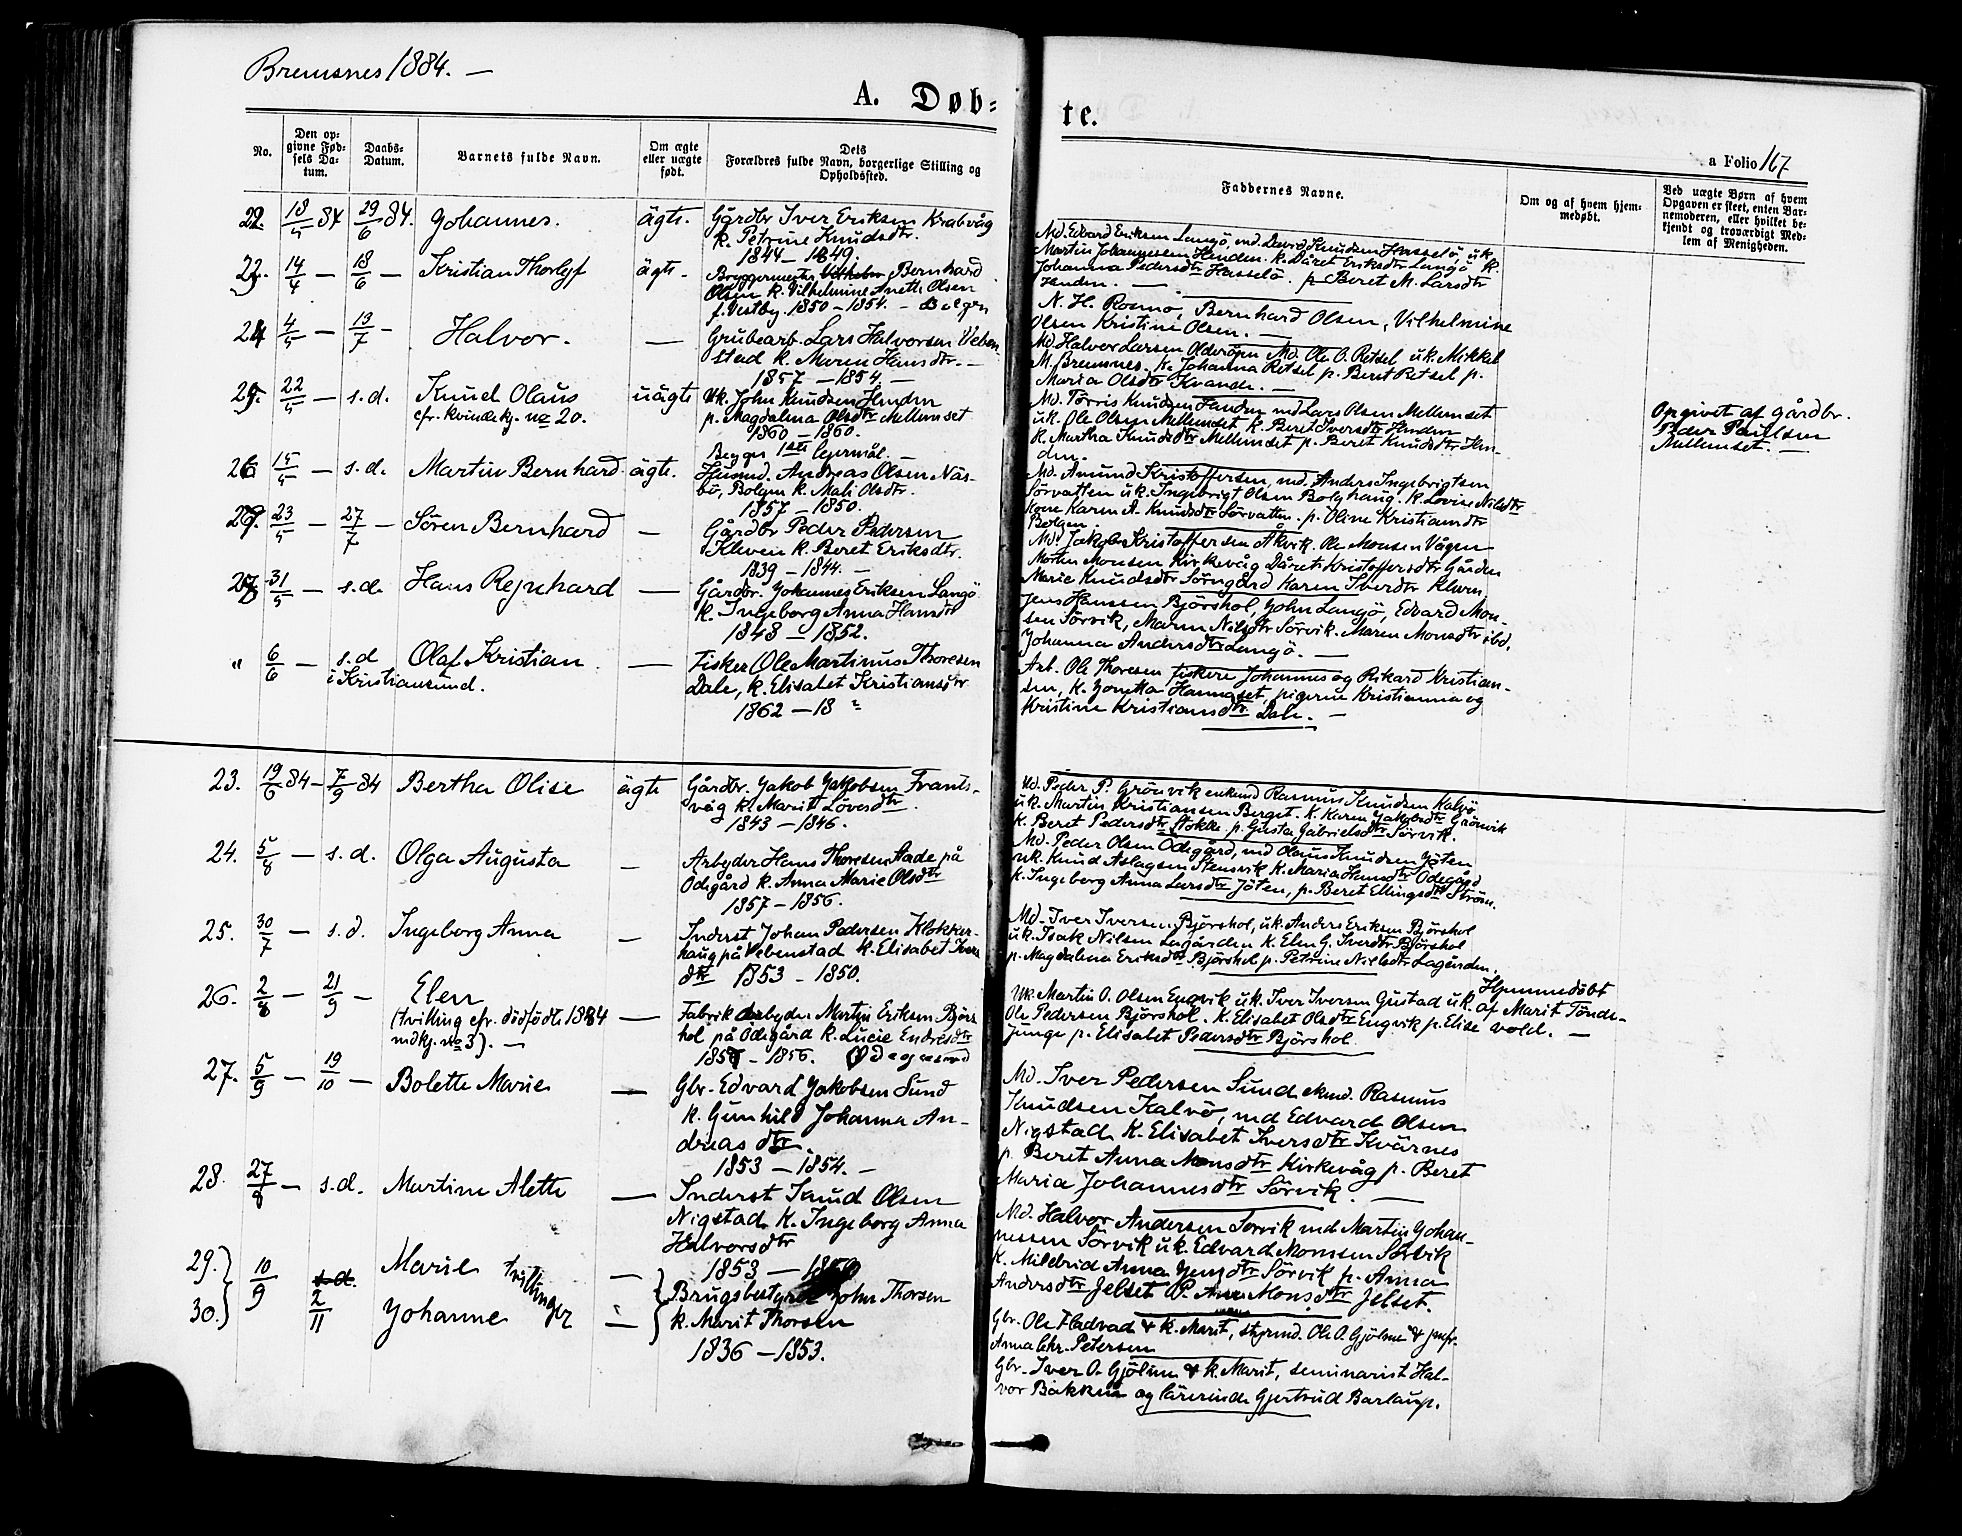 Bremsnes 1884. —
A. Døb=
te.
a Folio 167
No.
Den op=
givne Fød=
sels Da=
tum.
Daabs=
Datum.
Barnets fulde Navn.
Om ægte
eller uægte
født.
Dets
Forældres fulde Navn, borgerlige Stilling og
Opholdssted.
Faddernes Navne.
Om og af hvem hjem=
medøbt.
Ved uægte Børn af hvem
Opgaven er skeet, enten Bar=
nemoderen, eller hvilket be=
kjendt og troværdigt Med=
lem af Menigheden.
22. 18/5 84 29/6 84. Johannes. ägte. Gårdbr Iver Eriksen Krabvåg
k. Petrine Knudsdtr.
1844 — 1849.
Md. Edvard Eriksen Langö, md. David Knudsen Hasselö, uk.
Martin Johannessen Henden. k. Dåret Eriksdtr Langö k.
Johanna Pedersdtr Hasselö. p. Beret M. Larsdtr
Henden. —
14/4 — 18/6 — Kristian Thorlejf ägte. Bryggermester Bernhard
Olsen k. Vilhelmine Anette Olsen
f. Vestby. 1850 — 1854. — Bolgen
N. H. Rosmo, Bernhard Olsen, Vilhelmine
Olsen Kristine Olsen. —
24 4/5 — 13/7 — Halvor. — Grubearb. Lars Halvorsen Veben=
stad k. Maren Hansdtr. —
1857 — 1854. —
Md. Halvor Larsen Olderöen Md. Ole O. Retsel uk. Mikkel
M. Bremsnes. k. Johanna Retsel p. Beret Retsel p.
Maria Olsdtr Kvande. —
25. 22/5 — s.d. Knud Olaus uägte Uk. John Knudsen Henden
cfr. kvindekj. no 20. p. Magdalena Olsdtr Mellemset
1860 — 1860.
Begges 1ste lejermål. —
Md. Törris Knudsen Henden md Lars Olsen Mellemset
uk. Ole Olsen Mellemset k. Beret Iversdtr Henden
k. Martha Knudsdtr Mellemset p. Beret Knudsdtr Hen=
den.
Opgivet af gårdbr.
Peder Paulsen
Mellemset. —
26 15/5 — s.d. Martin Bernhard. ägte. Husmd. Andreas Olsen Näs=
bö, Bolgen k. Mali Olsdtr.
1857 — 1850.
Md. Amund Kristoffersen, md. Anders Ingebrigtsen
Sörvatten uk. Ingebrigt Olsen Bolghaug. k. Lovise Nilsdtr
kone Karen A. Knudsdtr Sörvatten. p. Oline Kristiansdtr
Bolgen.
23/5 — 27/7 — Sören Bernhard — Gårdbr Peder Pedersen
Kleven k. Beret Eriksdtr.
1839 — 1844. —
Md. Jakob Kristoffersen Åkvik. Ole Monsen Vågen
Morten Monsen Kirkevåg Dåret Kristoffersdtr Gården
Marie Knudsdtr Sörngård Karen Iversdtr Kleven
31/5 — s.d. Hans Rejnhard — Gårdbr. Johannes Eriksen Langö
k. Ingeborg Anna Hansdtr
1848 — 1852.
Jens Hanssen Björshol, John Langö, Edvard Mon=
sen Sörvik, Maren Nilsdtr Sörvik. Maren Monsdtr ibd.
Johanna Andersdtr Langö. —
" 6/6 — s.d Olaf Kristian. — Fisker Ole Martinus Thoresen
i Kristiansund. Dale, k. Elisabet Kristiansdtr
1862 — 18 "
Arb. Ole Thoresen fiskere Johannes og Rikard Kristian=
sen, k. Jonetta Hannaset, pigerne Kristianna og
Kristine Kristiansdtr Dale. —
23. 19/6 84 — 7/9 84 Bertha Olise ägte Gårdbr. Jakob Jakobsen Frants=
våg k. Marit Lovesdtr.
1843 — 1846.
Md. Peder P. Grönvik enkemd Rasmus Knudsen Kalvö
uk. Martin Kristiansen Berget. k. Karen Jakobsdtr Grönvik
k. Beret Pedersdtr Stokke. p. Gusta Gabrielsdtr Sörvik.
24. 5/8 — s.d. Olga Augusta — Arbejder Hans Thoresen Aade på
Ödegård k. Anna Marie Olsdtr
1857 — 1856.
Md. Peder Olsen Ödegård, md Olaus Knudsen Jöten
uk. Knud Aslagsen Stensvik k. Maria Hansdtr Ödegård
k. Ingeborg Anna Larsdtr Jöten, p. Beret Ellingsdtr Ström.
25. 30/7 — s.d. Ingeborg Anna — Inderst Johan Pedersen Klokker=
haug på Vebenstad k. Elisabet Ivers
dtr 1853 — 1850.
Md. Iver Iversen Björshol, uk. Anders Eriksen Björshol
uk. Isak Nilsen Lagården k. Elen G. Iversdtr Björshol
p. Magdalena Eriksdtr Björshol p. Petrine Nilsdtr Lagården.
26. 2/8 — 21/9 — Elen
(tvilling cfr. dödfödte 1884 — Fabrikarbejder Martin Eriksen Björs
mdkj. no 3). — hol på Ödegård k. Lucie Endresdtr
1857 — 1856. Ödegaard
Uk. Martin O. Olsen Engvik uk. Iver Iversen Gustad uk.
Ole Pedersen Björshol. k. Elisabet Olsdtr Engvik p. Elise
Junge p. Elisabet Pedersdtr Björshol.
Hjemmedöbt
af Marit Tönde=
vold. —
27. 5/9 — 19/10 — Bolette Marie — Gbr. Edvard Jakobsen Sund
k. Gunhild Johanna An=
dreas dtr.
1853 — 1854. —
Md. Iver Pedersen Sund ekmd. Rasmus
Knudsen Kalvö, md Edvard Olsen
Nigstad k. Elisabet Iversdtr Kvärnes
p. Beret Anna Monsdtr Kirkevåg p. Beret
Maria Johannesdtr Sörvik. —
28. 27/8 — s.d. Martine Alette — Inderst Knud Olsen
Nigstad k. Ingeborg Anna
Halvorsdtr
1853 — 1850
Md. Halvor Andersen Sörvik md Martin Johan=
nessen Sörvik uk. Edvard Monsen Sörvik
k. Mildrid Anna Jensdtr Sörvik p. Anna
Andersdtr Jelset P. Ane Monsdtr Jelset.
29.} 10/9 s.d. Marie tvillinger —
30.} 2/11 Johanne —
{Brugsbestyrer John Thorsen
k. Marit Thorsen
1836 — 1853.
Gbr. Ole Fladvad & k. Marit, styrmd. Ole O. Gjölme & jmfr.
Anna Chr. Petersen
Gbr. Iver O. Gjölme & k. Marit, seminarist Hal=
vor Bakken og lärerinde Gjertrud Barlaup.